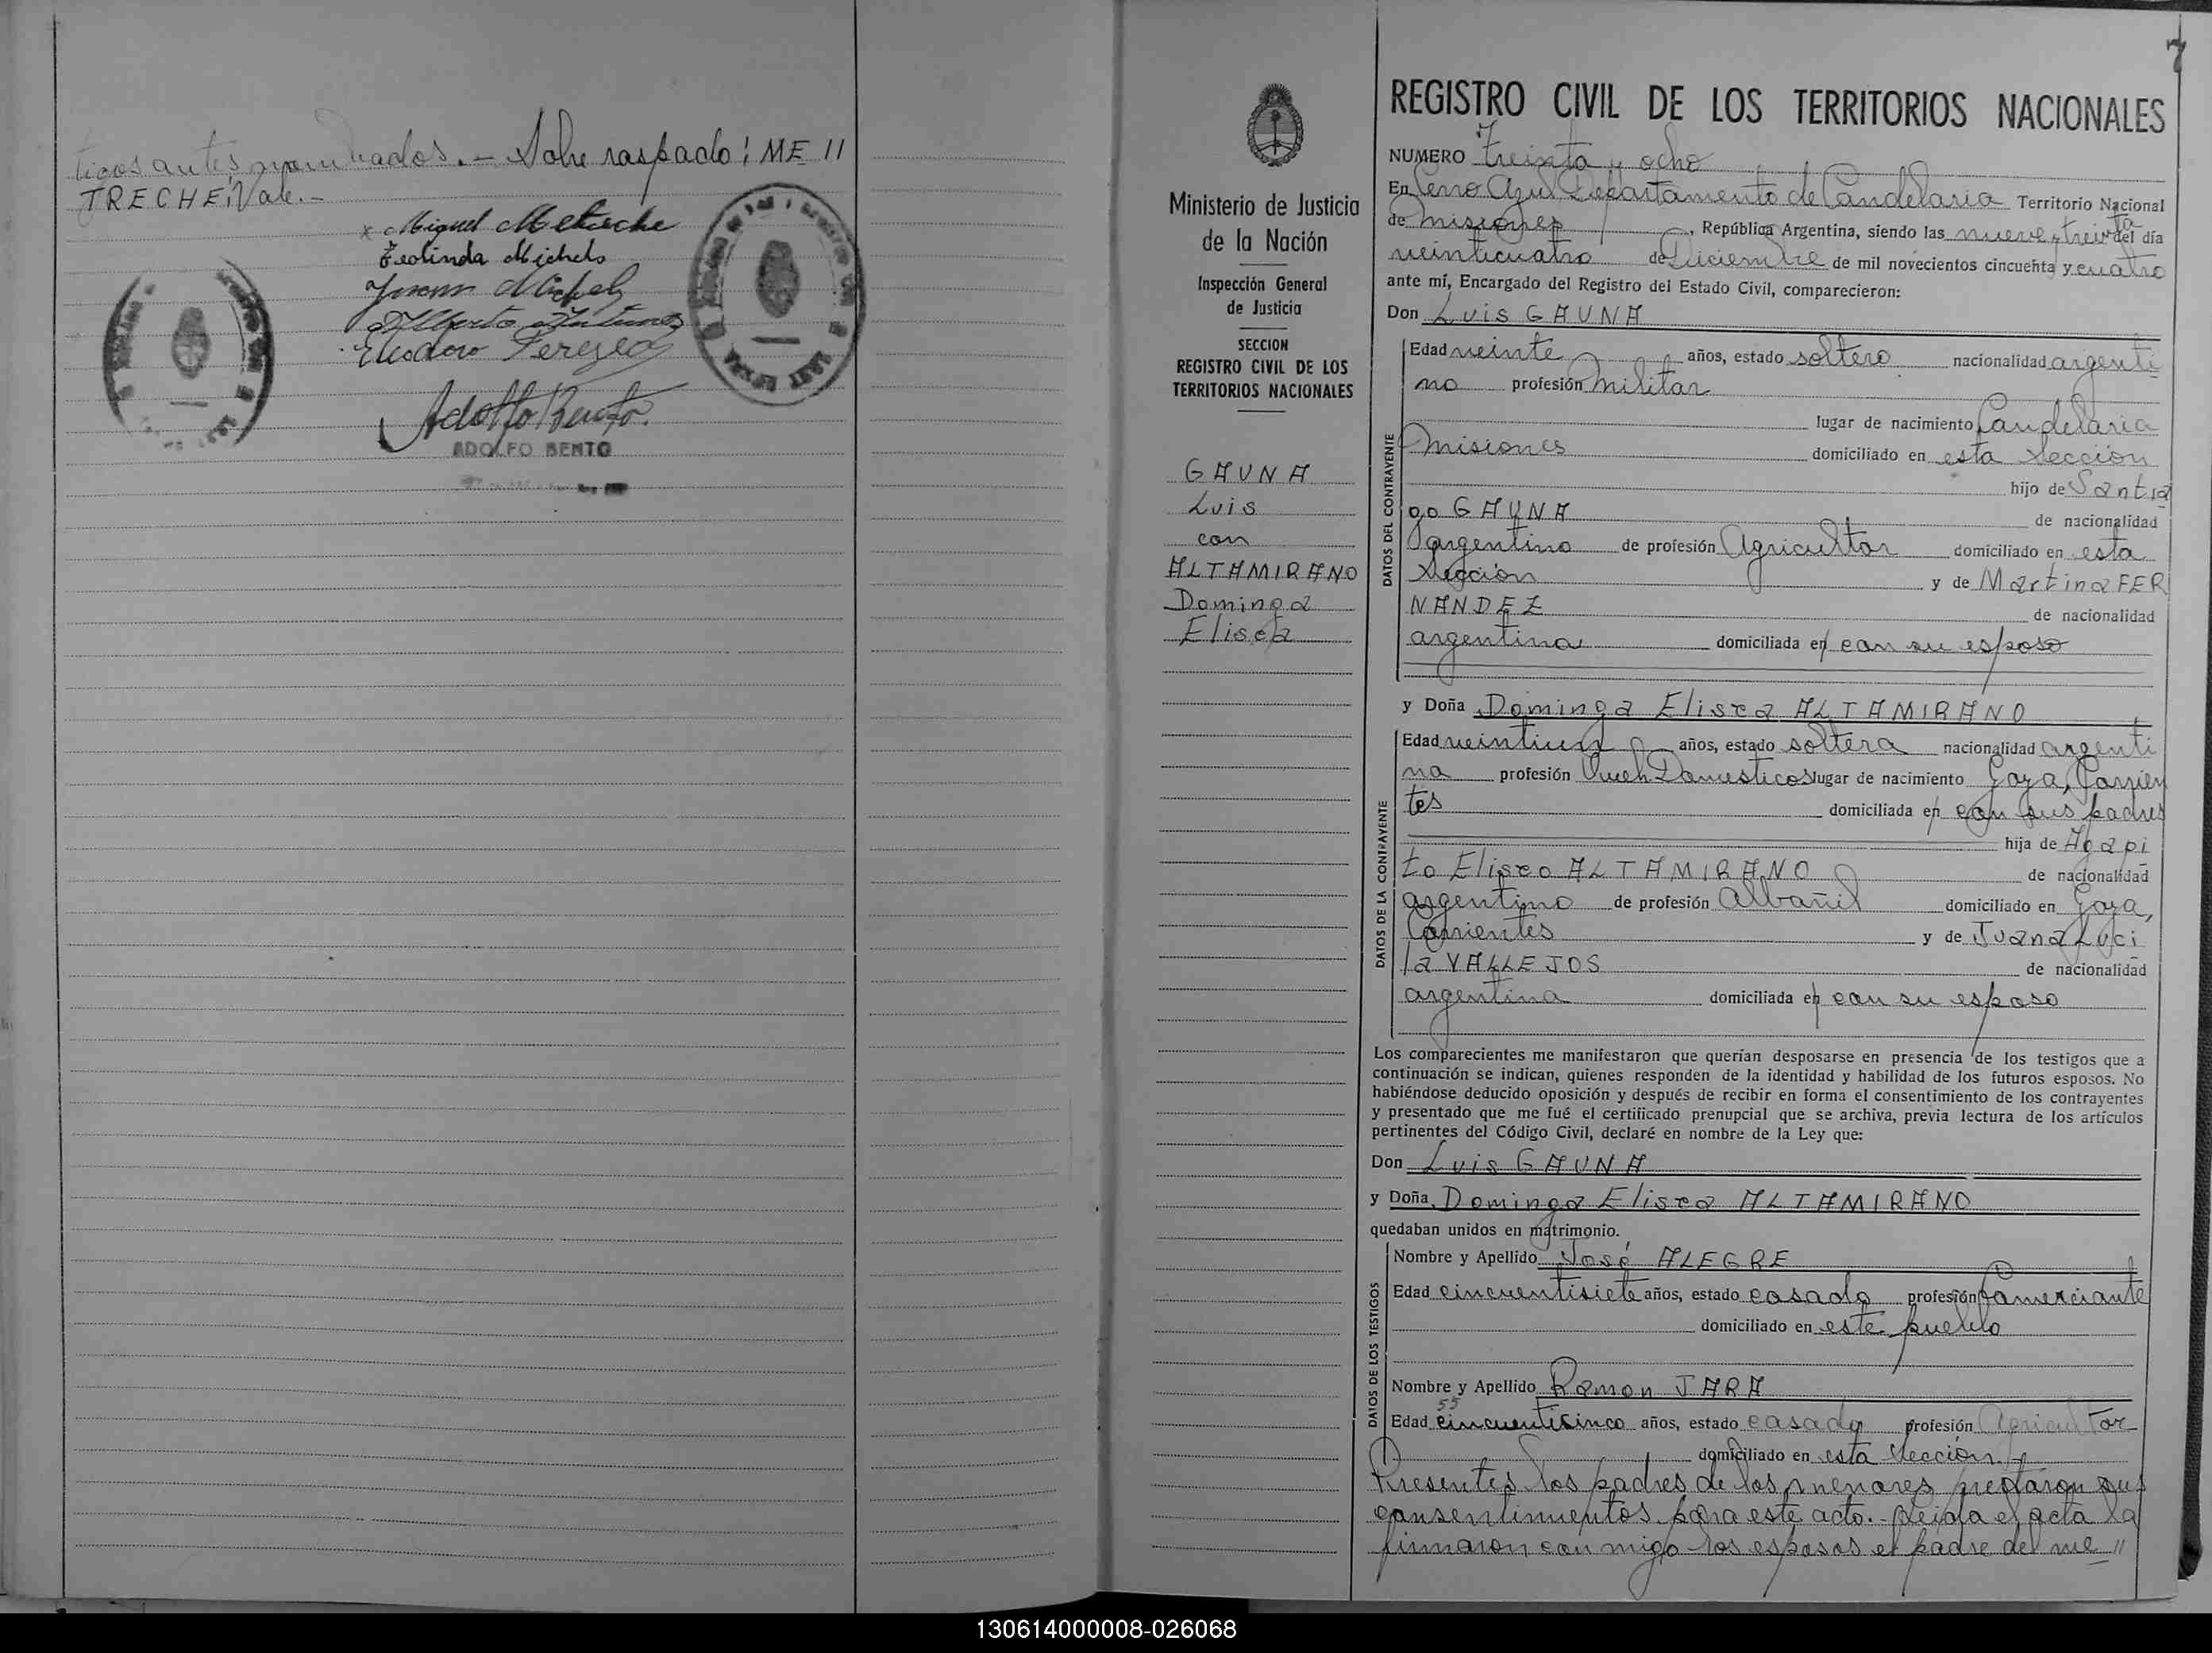 tigos antes nombrados.- Sobre raspado: ME //
TRECHE: Vale.-
x Miguel Metreche
Teolinda Michels
Juan Michels
Alberto Antunez
Eliodoro Pereyra
Adolfo Bento
ADOLFO BENTO
7
Ministerio de Justicia
de la Nación
Inspección General
de Justicia
SECCION
REGISTRO CIVIL DE LOS
TERRITORIOS NACIONALES
GAUNA
Luis
con
ALTAMIRANO
Dominga
Elisea
REGISTRO CIVIL DE LOS TERRITORIOS NACIONALES
NUMERO Treinta y ocho
En Cerro Azul Departamento de Candelaria Territorio Nacional
de Misiones, República Argentina, siendo las nueve y treinta del día
veinticuatro de Diciembre de mil novecientos cincuenta y cuatro
ante mí, Encargado del Registro del Estado Civil, comparecieron:
Don Luis GAUNA
DATOS DEL CONTRAYENTE
Edad veinte años, estado soltero nacionalidad argenti
no profesión Militar
lugar de nacimiento Candelaria
Misiones domiciliado en esta Sección
hijo de Santia
go GAUNA de nacionalidad
argentino de profesión Agricultor domiciliado en esta
Sección y de Martina FER
NANDEZ de nacionalidad
argentina domiciliada en con su esposo
y Doña Dominga Elisea ALTAMIRANO
DATOS DE LA CONTRAYENTE
Edad veintiun años, estado soltera nacionalidad argenti
na profesión Queh. Domesticos lugar de nacimiento Goya, Corrien
tes domiciliada en con sus padres
hija de Agapi
to Eliseo ALTAMIRANO de nacionalidad
argentino de profesión Albañil domiciliado en Goya,
Corrientes y de Juana Luci
la VALLEJOS de nacionalidad
argentina domiciliada en con su esposo
Los comparecientes me manifestaron que querían desposarse en presencia de los testigos que a
continuación se indican, quienes responden de la identidad y habilidad de los futuros esposos. No
habiéndose deducido oposición y después de recibir en forma el consentimiento de los contrayentes
y presentado que me fué el certificado prenupcial que se archiva, previa lectura de los artículos
pertinentes del Código Civil, declaré en nombre de la Ley que:
Don Luis GAUNA
y Doña Dominga Elisea ALTAMIRANO
quedaban unidos en matrimonio.
DATOS DE LOS TESTIGOS
Nombre y Apellido José ALEGRE
Edad cincuentisiete años, estado casado profesión Comerciante
domiciliado en este pueblo
Nombre y Apellido Ramon JARA
55
Edad cincuenticinco años, estado casado profesión Agricultor
domiciliado en esta Sección
Presentes los padres de los menores prestaron sus
consentimientos para este acto.- Leida el acta la
firmaron con migo los esposos el padre del me //
130614000008-026068